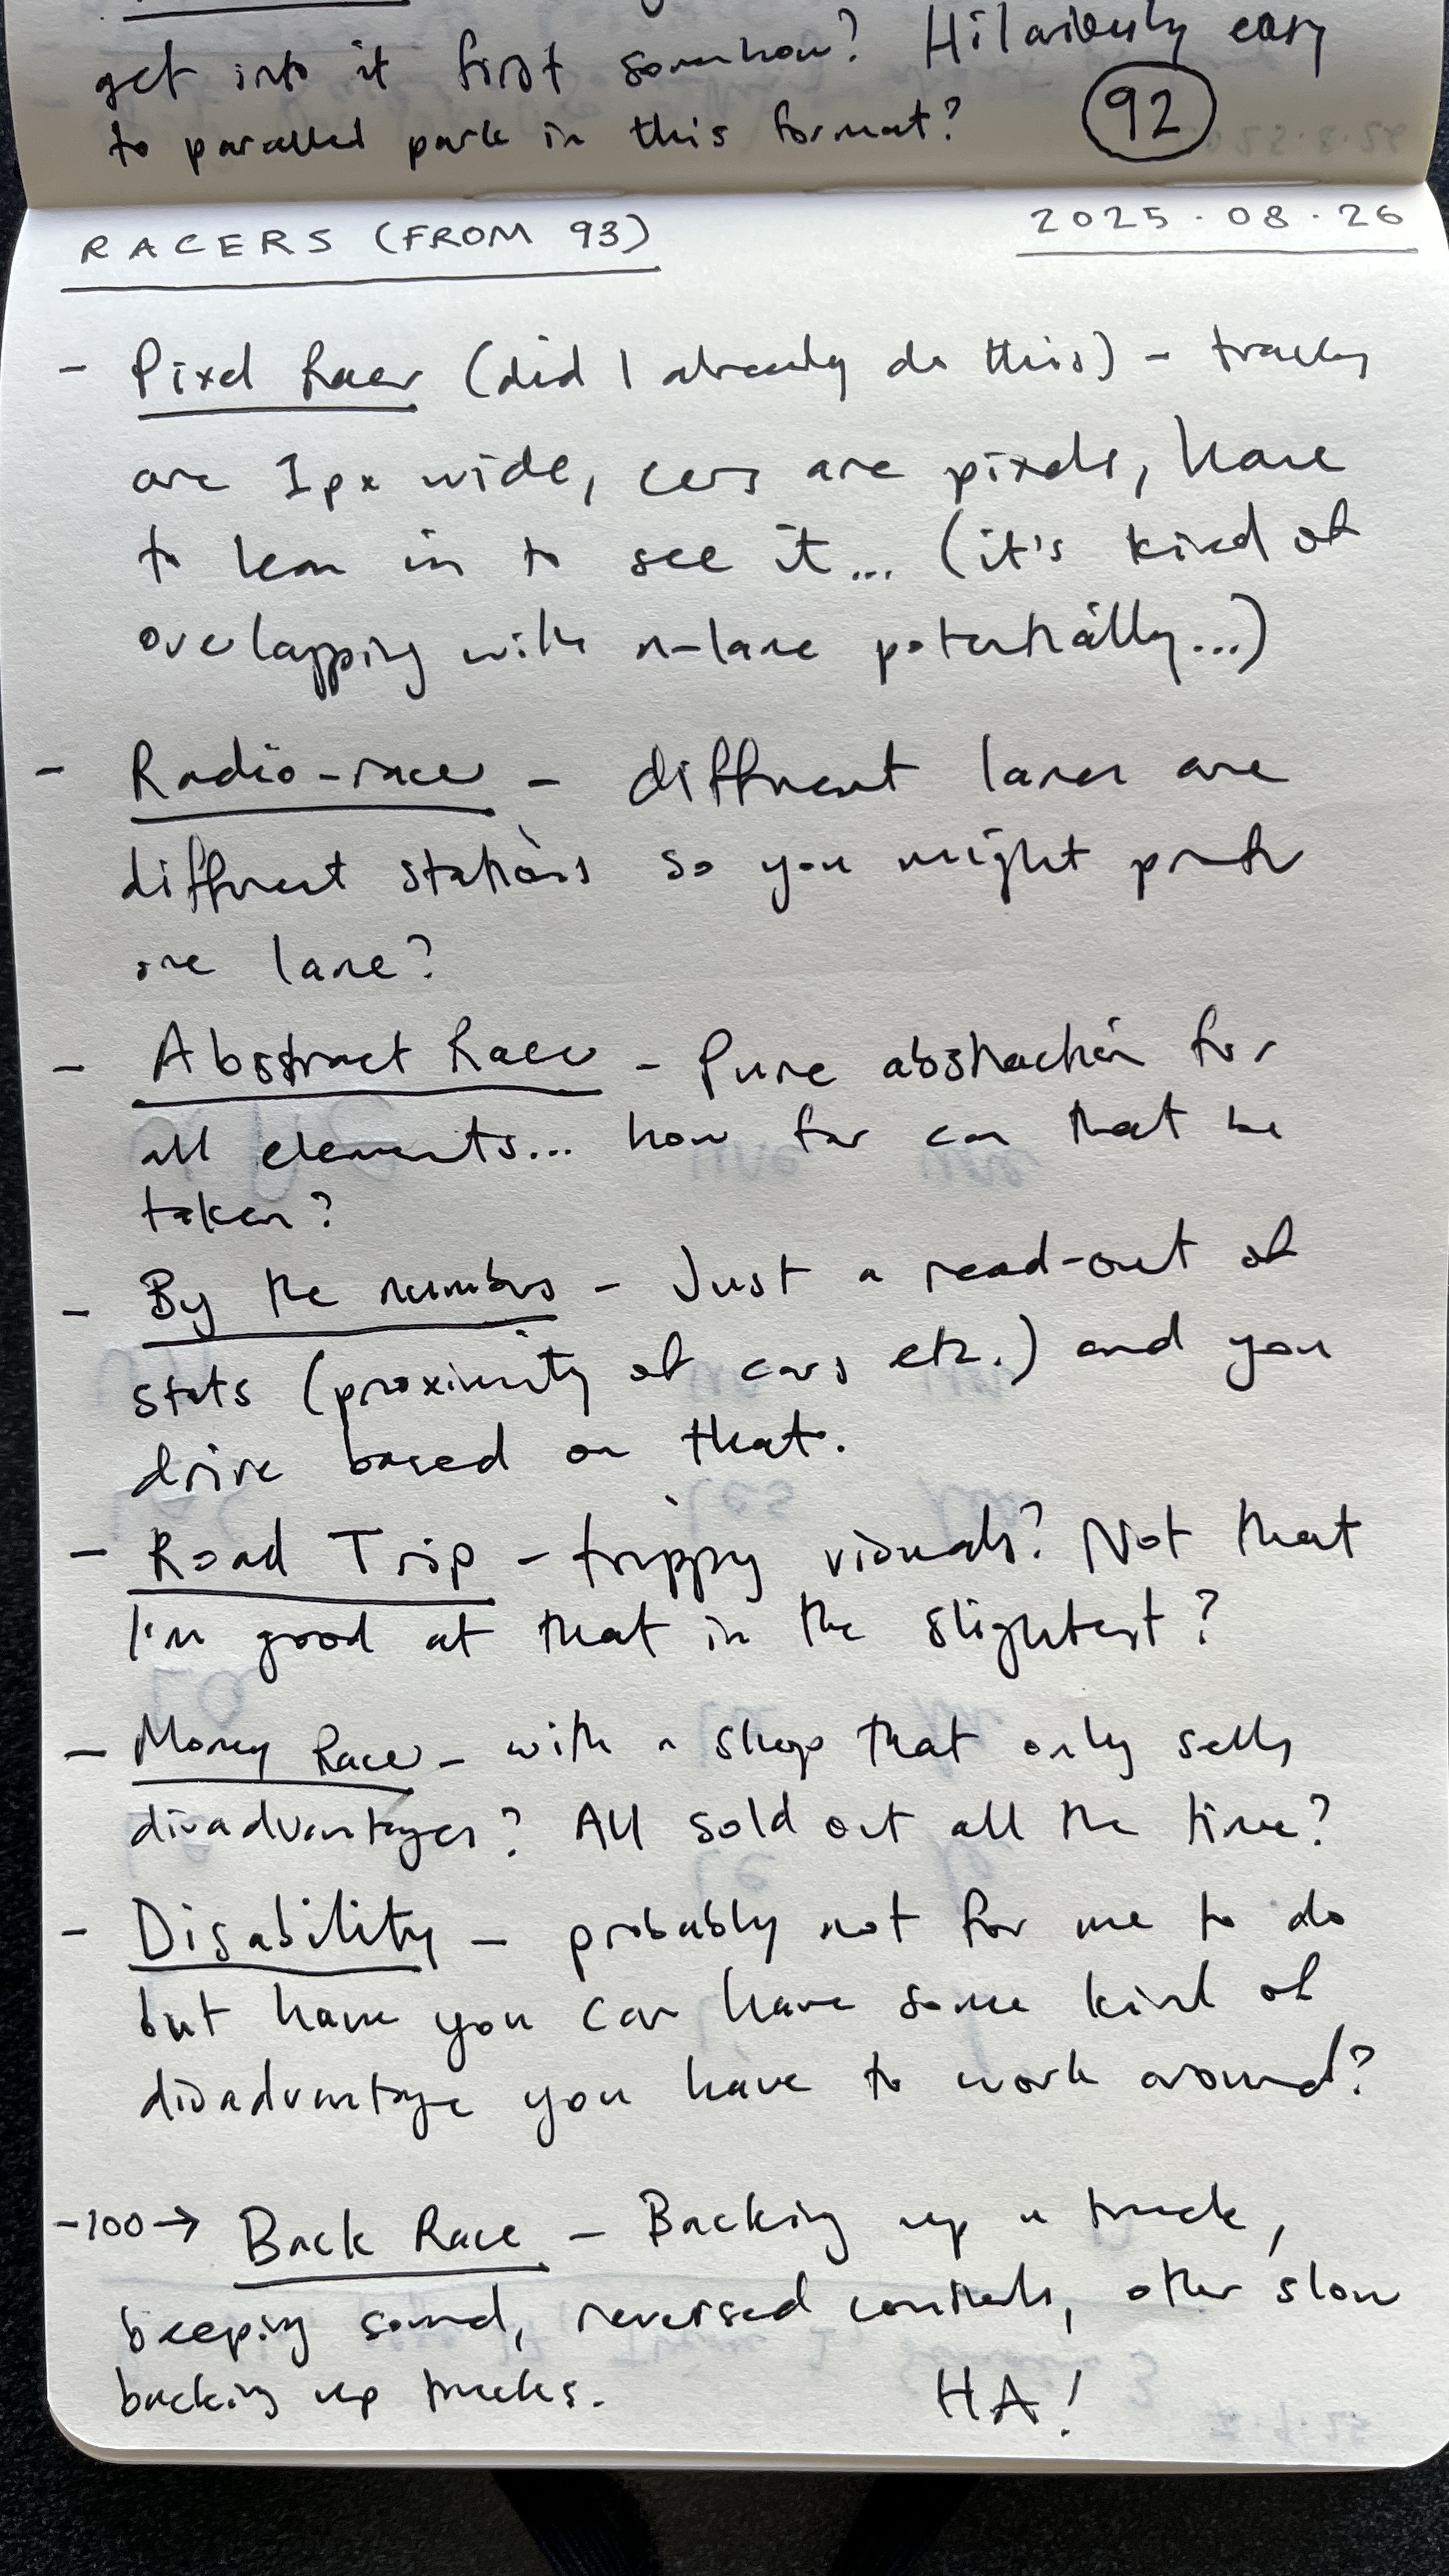 get into it first somehow? Hilariously easy
to parallel park in this format? 92
RACERS (FROM 93) 2025.08.26
- Pixel Racer (did I already do this) - tracks
are 1px wide, cars are pixels, have
to lean in to see it... (it's kind of
overlapping with n-lane potentially...)
- Radio-racer - different lanes are
different stations so you might prefer
one lane?
- Abstract Racer - Pure abstraction for
all elements... how far can that be
taken?
- By the numbers - Just a read-out of
stats (proximity of cars etc.) and you
drive based on that.
- Road Trip - trippy visuals? Not that
I'm good at that in the slightest?
- Money Racer - with a shop that only sells
disadvantages? All sold out all the time?
- Disability - probably not for me to do
but have you car have some kind of
disadvantage you have to work around?
-100→ Back Race - Backing up a truck,
beeping sound, reversed controls, other slow
backing up trucks. HA!